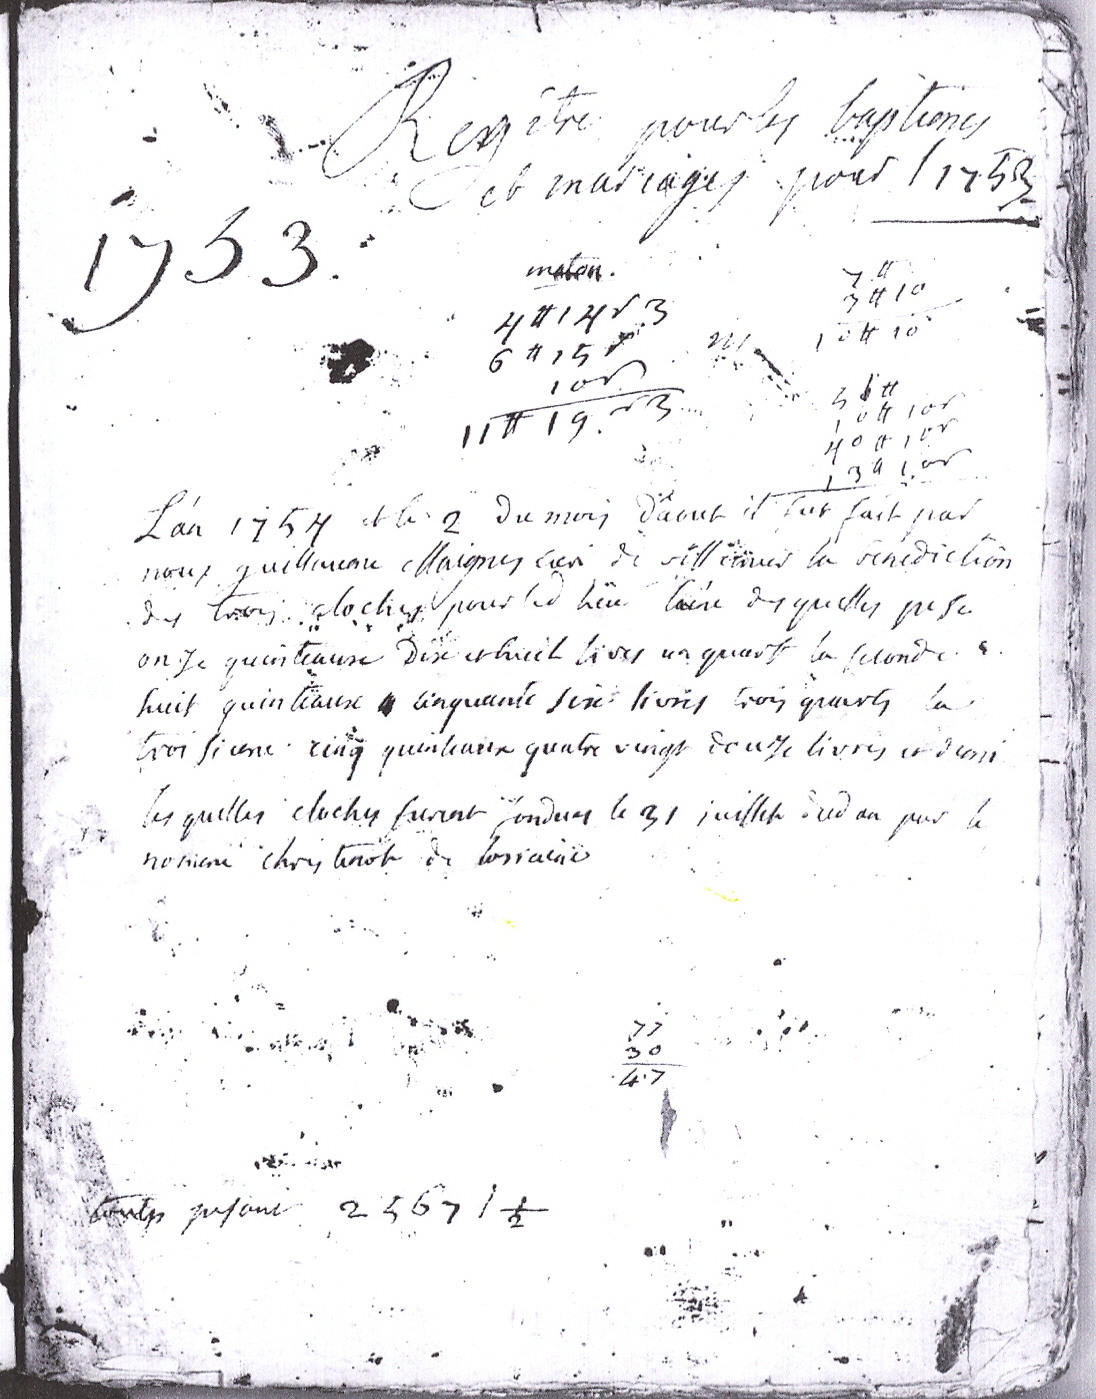 Regître pour les baptiemes
et mariages pour l 1753
1753.
4 # 14 s 3
6 # 15 s
10 s
11 # 19. s 3
7 #
3 # 10
10 # 10
51 #
10 # 10 s
40 # 10 s
13 # 10 s
L'án 1754 et le 2 du mois d'aout il fut fait par
nous guillaume Maignes curé de la bénédiction
des trois cloches pour led lieu l'une desquelles pese
onze quinteause dix et huit livres un quart la seconde
huit quinteaux cinquante six livres trois quarts la
troisieme cinq quinteaux quatre vingt douze livres et demi
les quelles cloches furent fondues le 31 juillet dud an par le
nommé christinot de lorraine
77
30
47
toutes pesant 2567 l 1/2